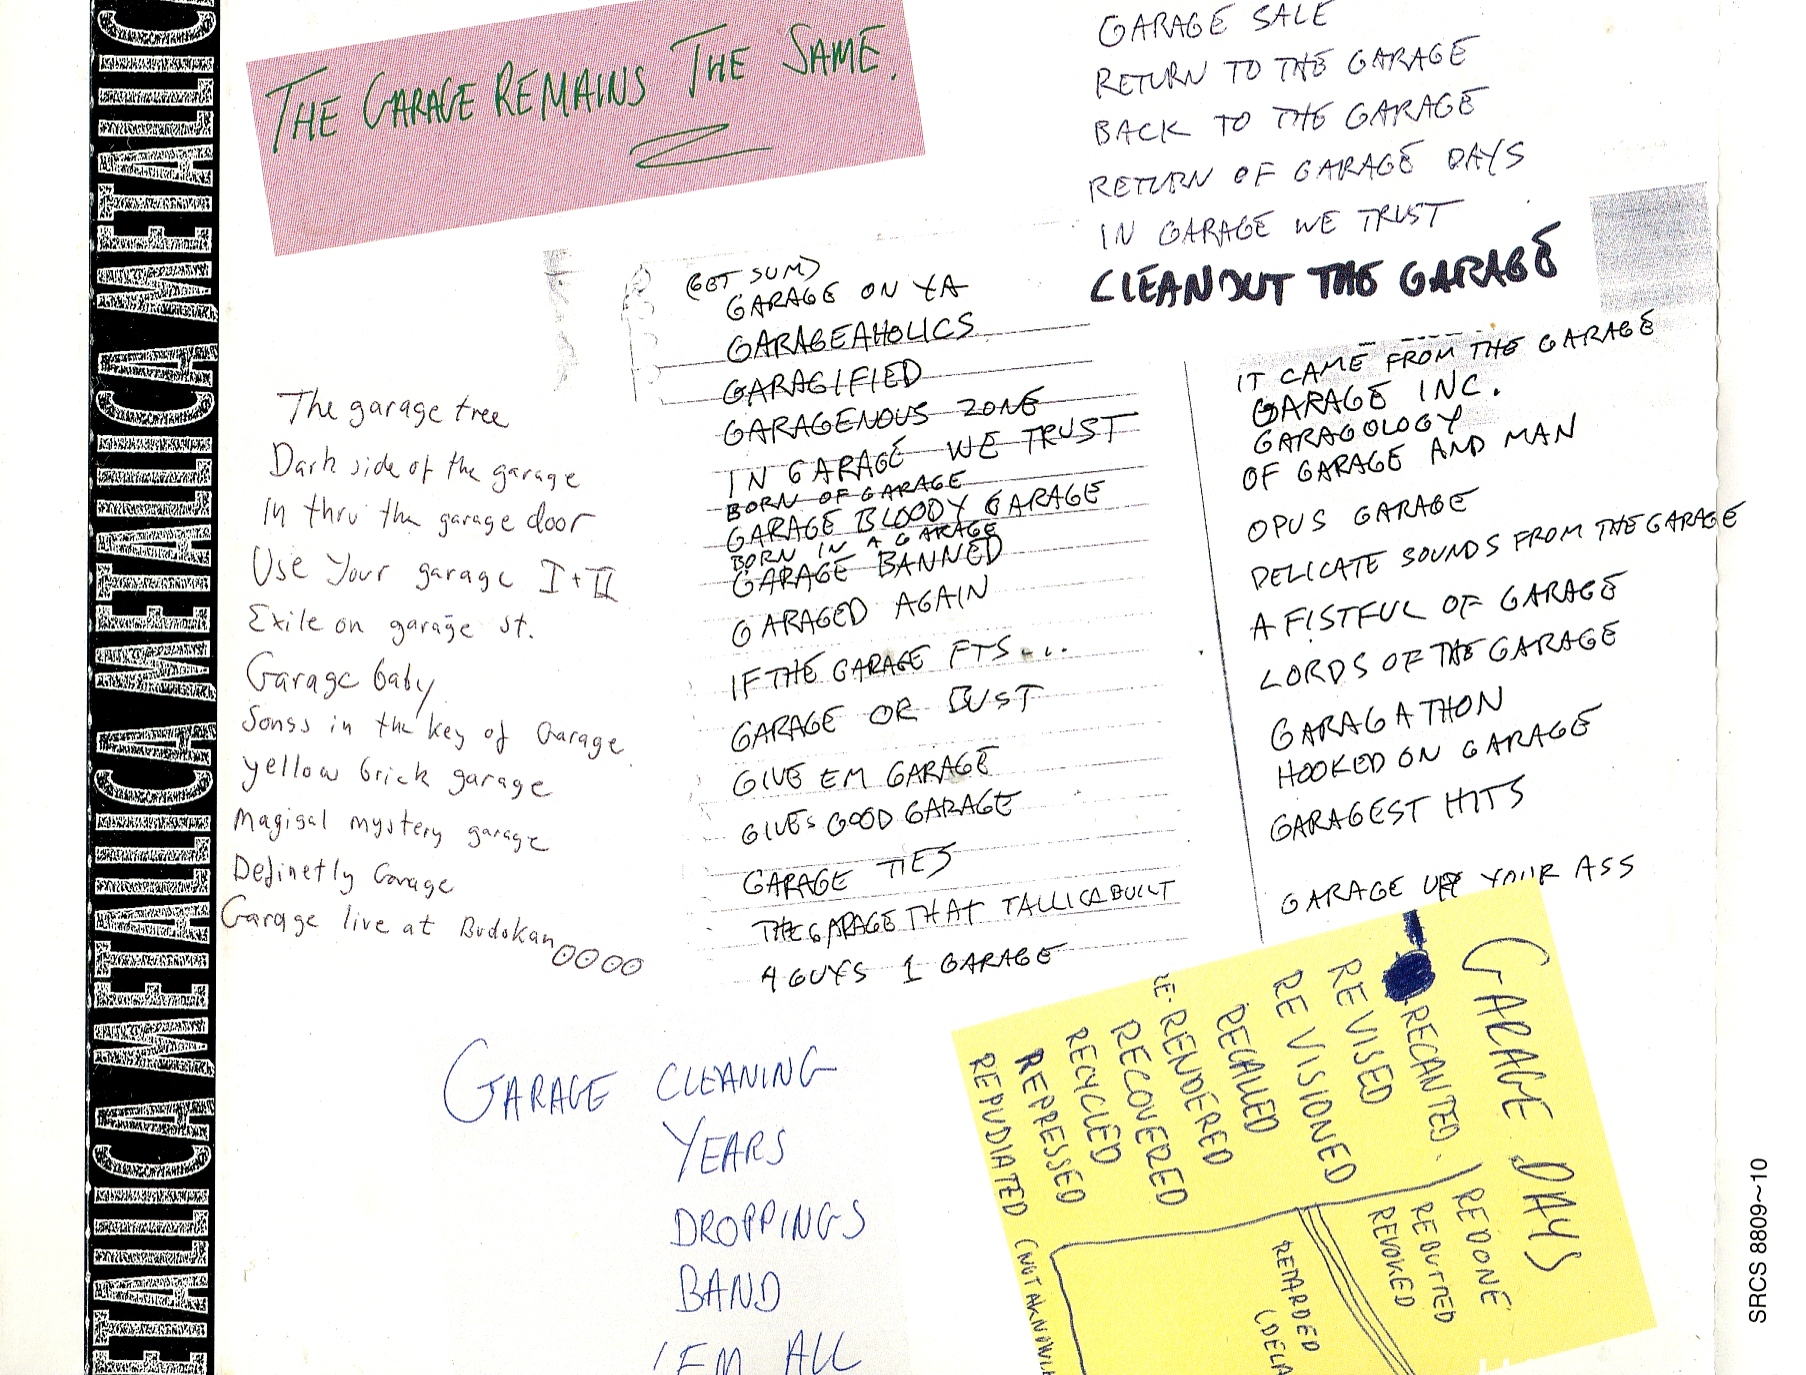 METALLICA METALLICA METALLICA METALLICA METALLICA
THE GARAGE REMAINS THE SAME.
GARAGE SALE
RETURN TO THE GARAGE
BACK TO THE GARAGE
RETURN OF GARAGE DAYS
IN GARAGE WE TRUST
CLEANOUT THE GARAGE
The garage tree
Dark side of the garage
In thru the garage door
Use Your garage I + II
Exile on garage st.
Garage baby
Songs in the key of Garage
yellow brick garage
Magisal mystery garage
Definetly Garage
Garage live at Budokan
(GET SUM)
GARAGE ON YA
GARAGEAHOLICS
GARAGIFIED
GARAGENOUS ZONE
IN GARAGE WE TRUST
BORN OF GARAGE
GARAGE BLOODY GARAGE
BORN IN A GARAGE
GARAGE BANNED
GARAGED AGAIN
IF THE GARAGE FTS...
GARAGE OR BUST
GIVE EM GARAGE
GIVES GOOD GARAGE
GARAGE TIES
THE GARAGE THAT TALLICA BUILT
4 GUYS 1 GARAGE
IT CAME FROM THE GARAGE
GARAGE INC.
GARAGOLOGY
OF GARAGE AND MAN
OPUS GARAGE
DELICATE SOUNDS FROM THE GARAGE
A FISTFUL OF GARAGE
LORDS OF THE GARAGE
GARAGATHON
HOOKED ON GARAGE
GARAGEST HITS
GARAGE UP YOUR ASS
GARAGE CLEANING
YEARS
DROPPINGS
BAND
'EM ALL
GARAGE DAYS
RECANTED.
REVISED
REVISIONED
RECALLED
RE-RENDERED
RECOVERED
RECYCLED
REPRESSED
REPUDIATED (NOT AKNOWL
REDONE
REBUTTED
REVOKED
RETARDED
(DELA
SRCS 8809~10